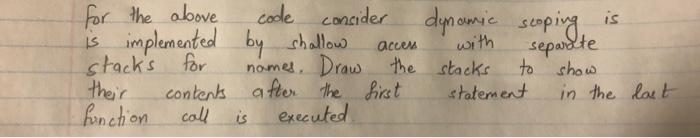 For the above code consider dynamic scoping is
is implemented by shallow access with separate
stacks for names. Draw the stacks to show
their contents after the first statement in the last
function call is executed.